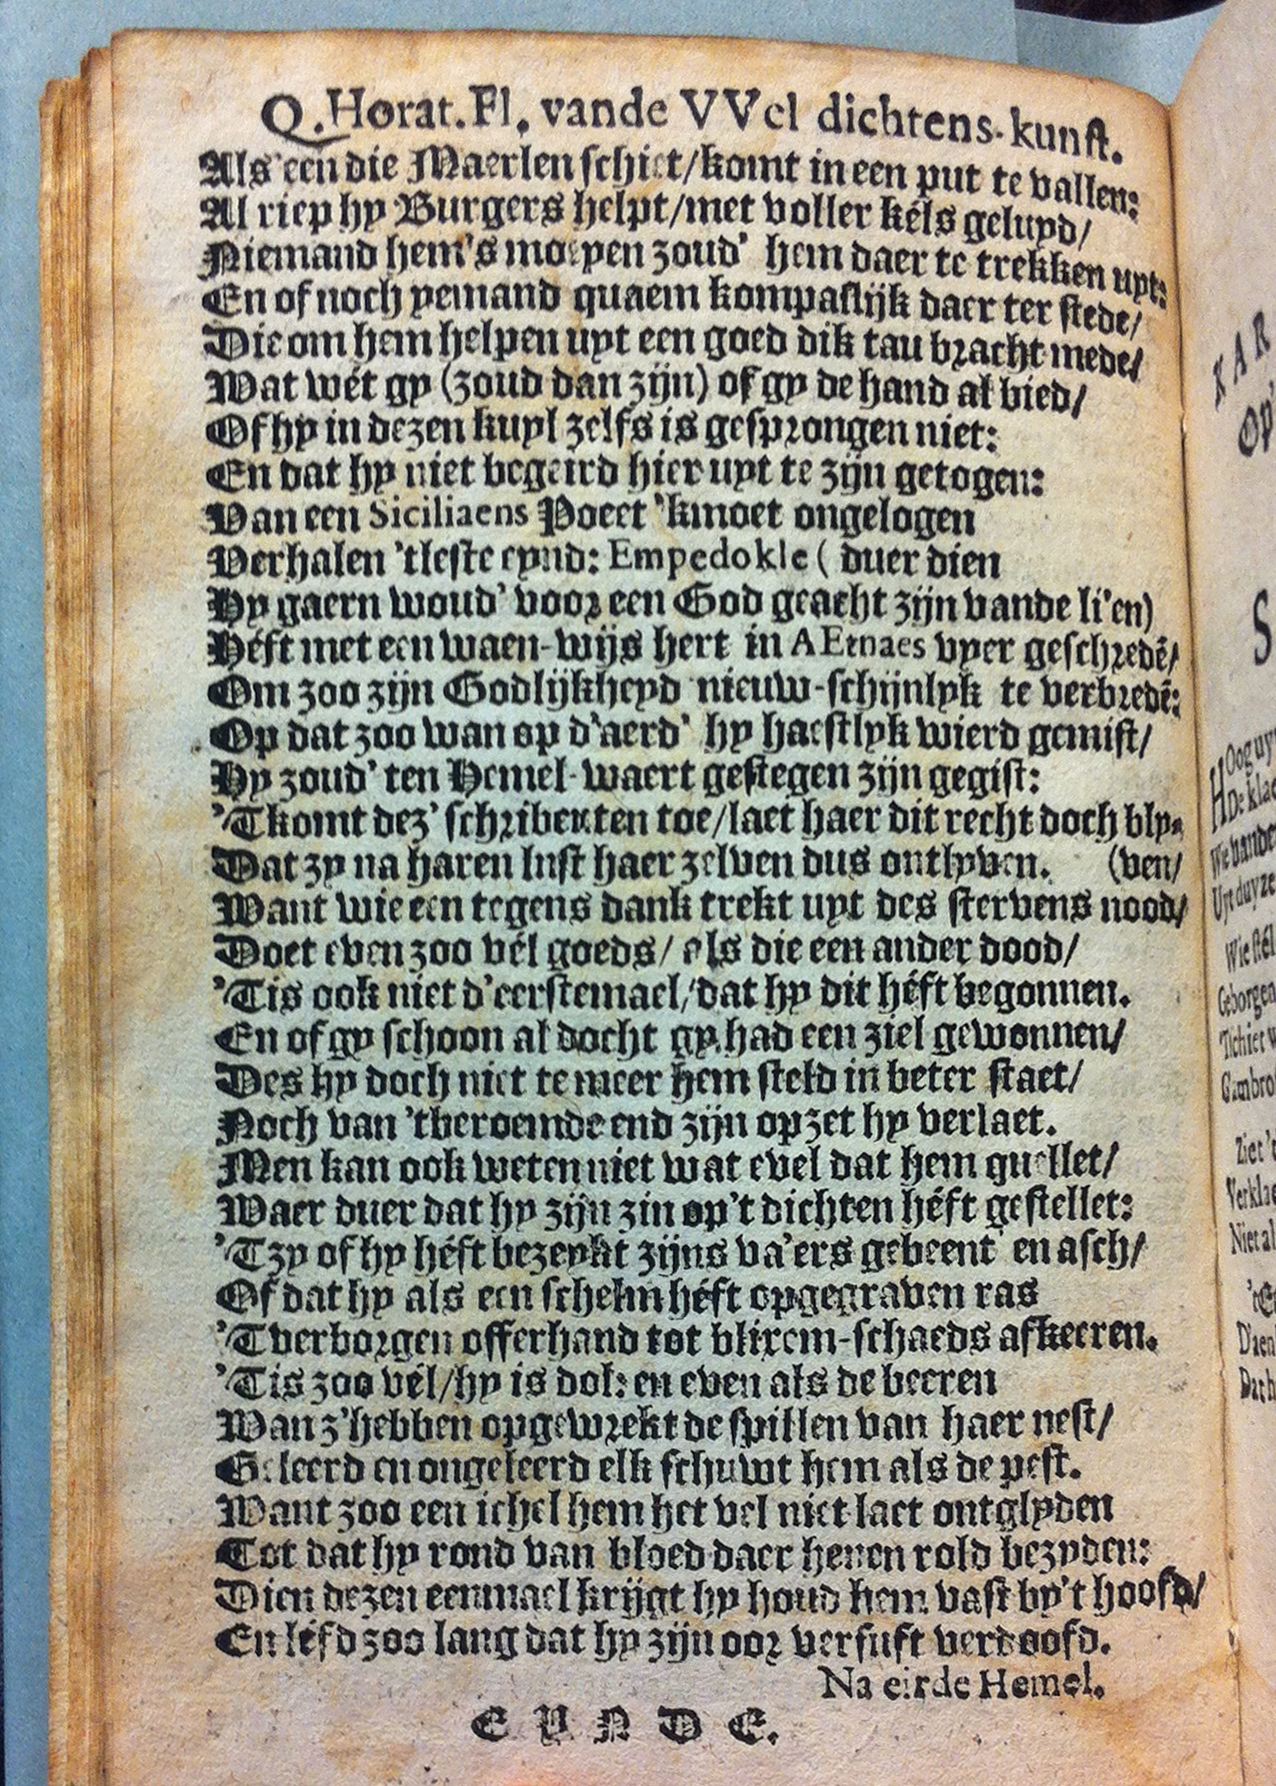 Q. Horat. Fl. vande VVel dichtens-kunst.
Als een die Maerlen schiet/komt in een put te vallen:
Al riep hy Burgers helpt/met voller kéls geluyd/
Niemand hem's moeyen zoud' hem daer te trekken uyt:
En of noch yemand quaem kompaslijk daer ter stede/
Die om hem helpen uyt een goed dik tau bracht mede/
Wat wét gy (zoud dan zijn) of gy de hand al bied/
Of hy in dezen kuyl zelfs is gesprongen niet:
En dat hy niet begeird hier uyt te zijn getogen:
Van een Siciliaens Poeet 'kmoet ongelogen
Verhalen 'tleste eynd: Empedokle ( duer dien
Hy gaern woud' voor een God geacht zijn vande li'en)
Héft met een waen-wijs hert in AEtnaes vyer geschredē/
Om zoo zijn Godlijkheyd nieuw-schijnlyk te verbredē:
Op dat zoo wan op d'aerd' hy haestlyk wierd gemist/
Hy zoud' ten Hemel-waert gestegen zijn gegist:
'Tkomt dez' schribenten toe/laet haer dit recht doch bly-
Dat zy na haren lust haer zelven dus ontlyven. (ven/
Want wie een tegens dank trekt uyt des stervens nood/
Doet even zoo vél goeds/ als die een ander dood/
'Tis ook niet d'eerstemael/dat hy dit héft begonnen.
En of gy schoon al docht gy had een ziel gewonnen/
Des hy doch niet te meer hem steld in beter staet/
Noch van 'tberoemde end zijn opzet hy verlaet.
Men kan ook weten niet wat evel dat hem quellet/
Waer duer dat hy zijn zin op't dichten héft gestellet:
'Tzy of hy héft bezeykt zijns va'ers gebeent' en asch/
Of dat hy als een schelm héft opgegraven ras
'Tverborgen offerhand tot blixem-schaeds afkeeren.
'Tis zoo vél/hy is dol: en even als de beeren
Wan z'hebben opgewrekt de spillen van haer nest/
Geleerd en ongeleerd elk schuwt hem als de pest.
Want zoo een ichel hem het vel niet laet ontglyden
Tot dat hy rond van bloed daer henen rold bezyden:
Dien dezen eenmael krijgt hy houd hem vast by't hoofd/
En léfd zoo lang dat hy zijn oor versuft verdoofd.
Na eirde Hemel.
EYNDE.
KAR
Op'
S
Hoog uy
De klae
We vande
Uyt duyze
Wie stél
Geborgen
'Tschiet w
Gambro
Ziet 't
Verklae
Niet al
D'aen
Dat h